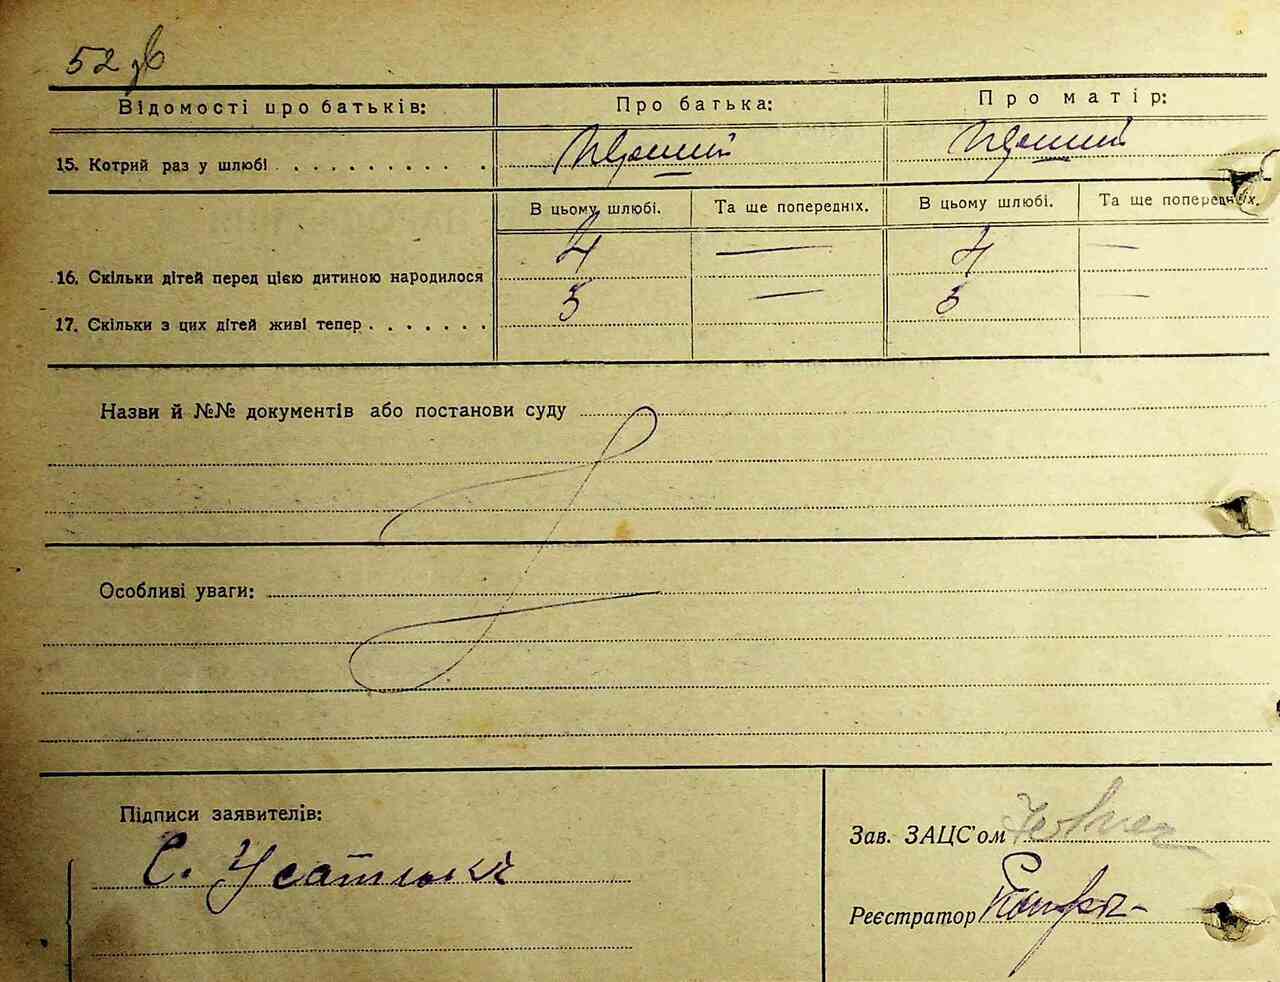 52 зв
Відомості про батьків: Про батька: Про матір:
15. Котрий раз у шлюбі . . . . . . . . . . Перший Перший
В цьому шлюбі. Та ще попередніх. В цьому шлюбі. Та ще попередніх.
16. Скільки дітей перед цією дитиною народилося 4 — 4 —
17. Скільки з цих дітей живі тепер . . . . . . . 3 — 3 —
Назви й №№ документів або постанови суду
Особливі уваги:
Підписи заявителів:
Зав. ЗАЦС'ом
С. Усатенко
Реєстратор